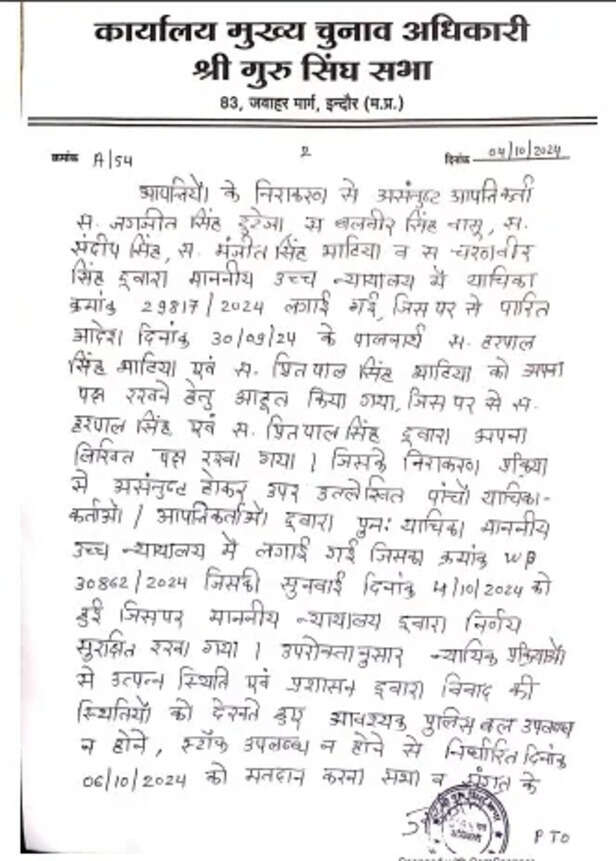 कार्यालय मुख्य चुनाव अधिकारी
श्री गुरु सिंघ सभा
83, जवाहर मार्ग, इन्दौर (म.प्र.)
क्रमांक A/54 2 दिनांक 04/10/2024
आपत्तियों के निराकरण से असंतुष्ट आपत्तिकर्ता
स. जगजीत सिंह टुटेजा स बलवीर सिंह वासू, स.
संदीप सिंह, स. मंजीत सिंह भाटिया व स चरणवीर
सिंह द्वारा माननीय उच्च न्यायालय में याचिका
क्रमांक 29817/2024 लगाई गई, जिस पर से पारित
आदेश दिनांक 30/09/24 के पालनार्थ स. हरपाल
सिंह भाटिया एवं स. प्रितपाल सिंह भाटिया को अपना
पक्ष रखने हेतु आहूत किया गया, जिस पर से स.
हरपाल सिंह एवं स. प्रितपाल सिंह द्वारा अपना
लिखित पक्ष रखा गया । जिसके निराकरण प्रक्रिया
से असंतुष्ट होकर उपर उल्लेखित पांचों याचिका-
कर्ताओं / आपत्तिकर्ताओं द्वारा पुनः याचिका माननीय
उच्च न्यायालय में लगाई गई जिसका क्रमांक WP
30862/2024 जिसकी सुनवाई दिनांक 4/10/2024 को
हुई जिसपर माननीय न्यायालय द्वारा निर्णय
सुरक्षित रखा गया । उपरोक्तानुसार न्यायिक प्रक्रियाओं
से उत्पन्न स्थिति एवं प्रशासन द्वारा विवाद की
स्थितियों को देखते हुए आवश्यक पुलिस बल उपलब्ध
न होने, स्टॉफ उपलब्ध न होने से निर्धारित दिनांक
06/10/2024 को मतदान करना सभा व संगत के
PTO